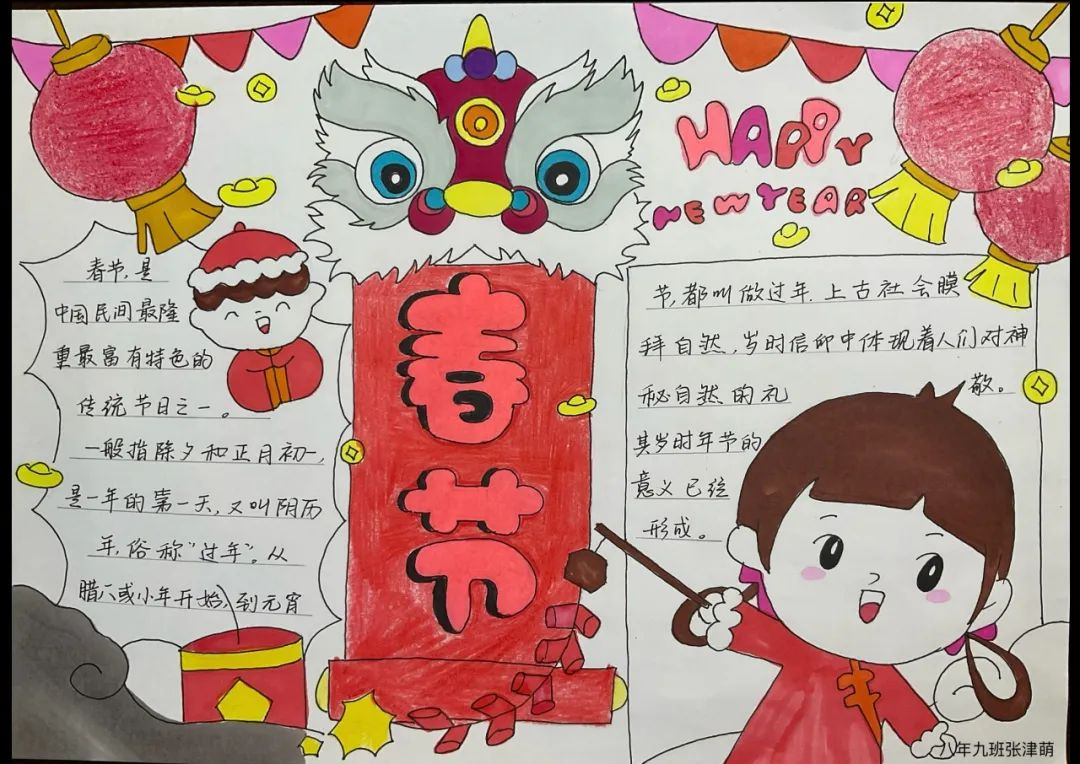 HAPPY
NEW YEAR
春节
春节,是
中国民间最隆
重最富有特色的
传统节日之一。
一般指除夕和正月初一,
是一年的第一天,又叫阴历
年,俗称“过年”。从
腊八或小年开始,到元宵
节,都叫做过年.上古社会膜
拜自然,岁时信仰中体现着人们对神
秘自然的礼敬。
其岁时年节的
意义已经
形成。
八年九班张津萌